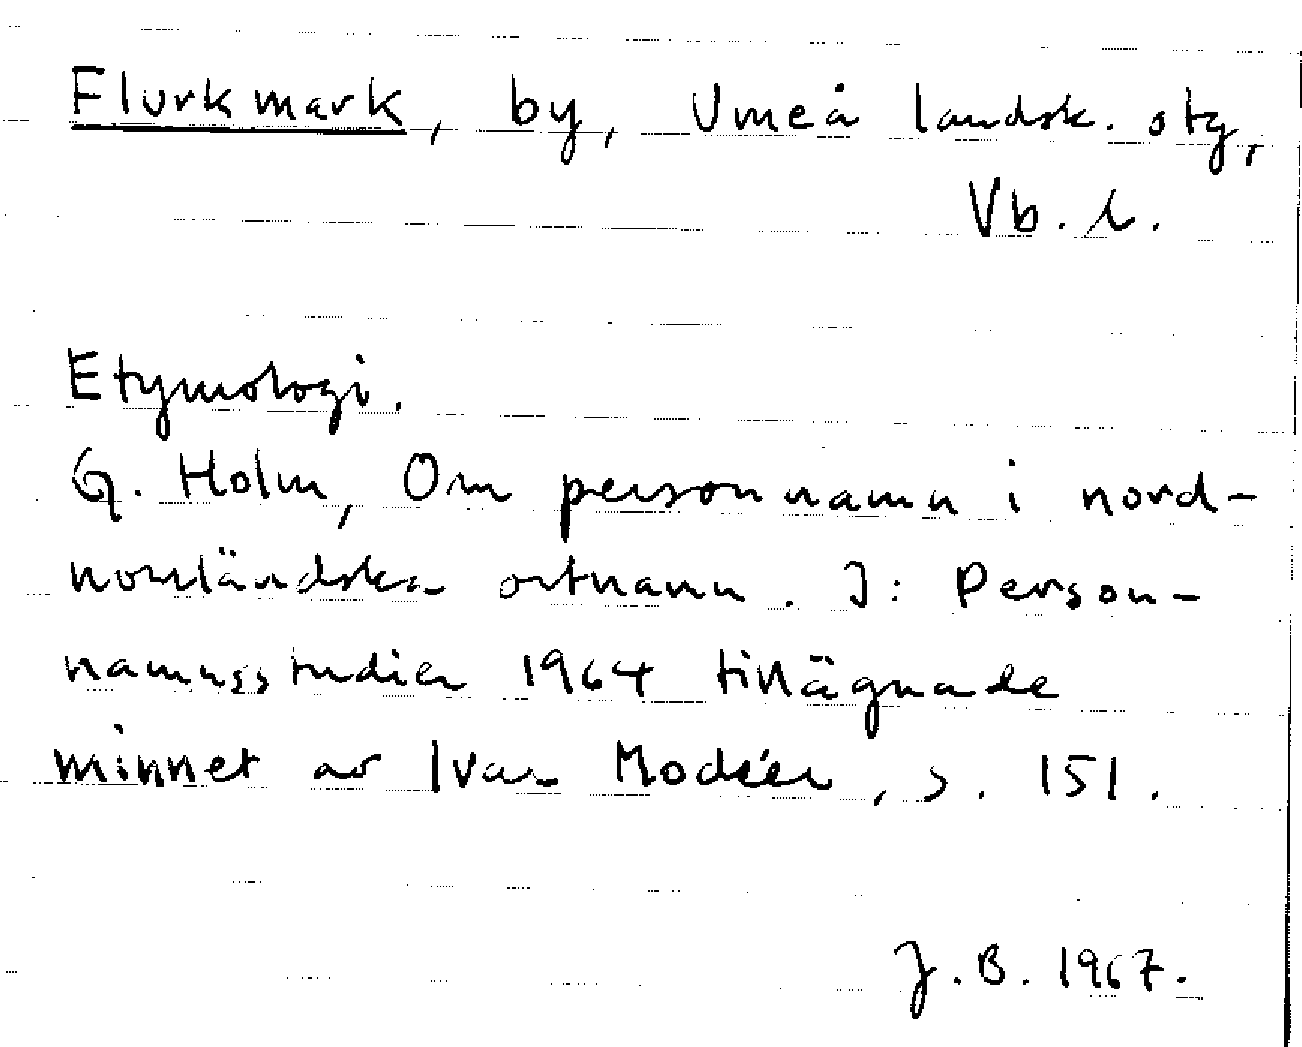 Flurkmark, by, Umeå landsk. sty,
Vb. l.
Etymologi.
G. Holm, Om personnamn i nord-
norrländska ortnamn. I: Person-
namnsstudier 1964 tillägnade
minnet av Ivar Modéer, s. 151.
J. B. 1967.